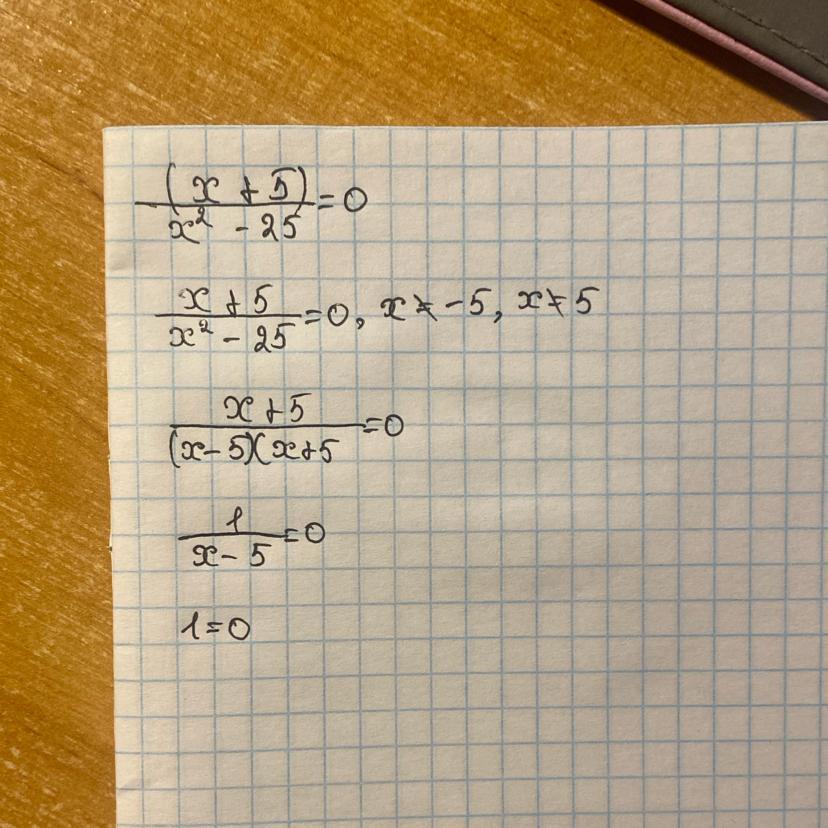 (x + 5) / x² - 25 = 0
x + 5 / x² - 25 = 0, x ≠ -5, x ≠ 5
x + 5 / (x - 5)(x + 5 = 0
1 / x - 5 = 0
1 = 0